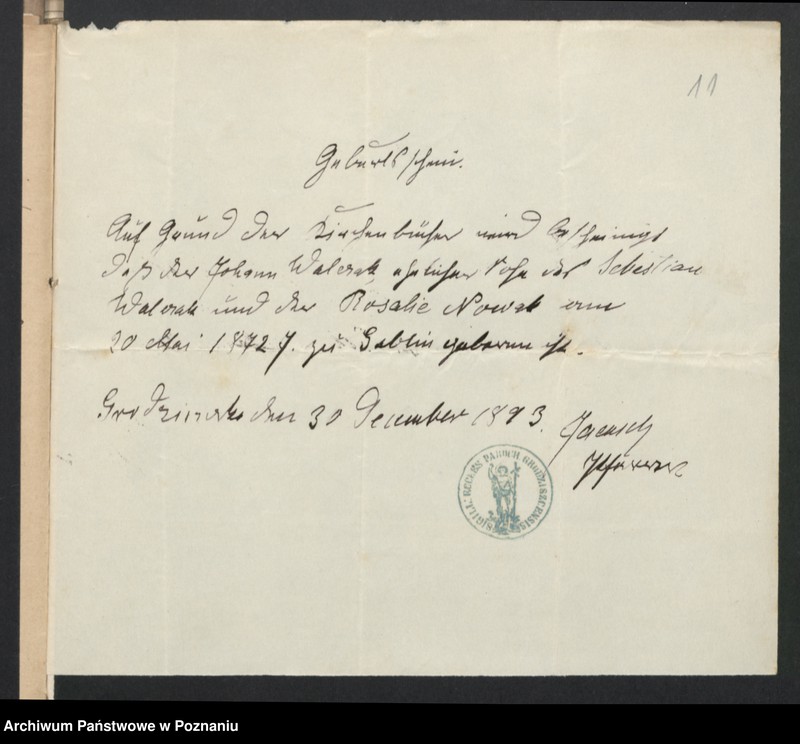 11
Geburtsschein.
Auf Grund der Kirchenbücher wird bescheinigt
daß der Johann Walczak, ehelicher Sohn des Sebestian
Walczak und der Rosalie Nowak am
20 Mai 1872 J. zu Goblin geboren ist.
Grodzisczko den 30 December 1893.
Jaensch
Pfarrer
SIGILL: ECCLES PAROCH GRODZISZCENSIS
Archiwum Państwowe w Poznaniu